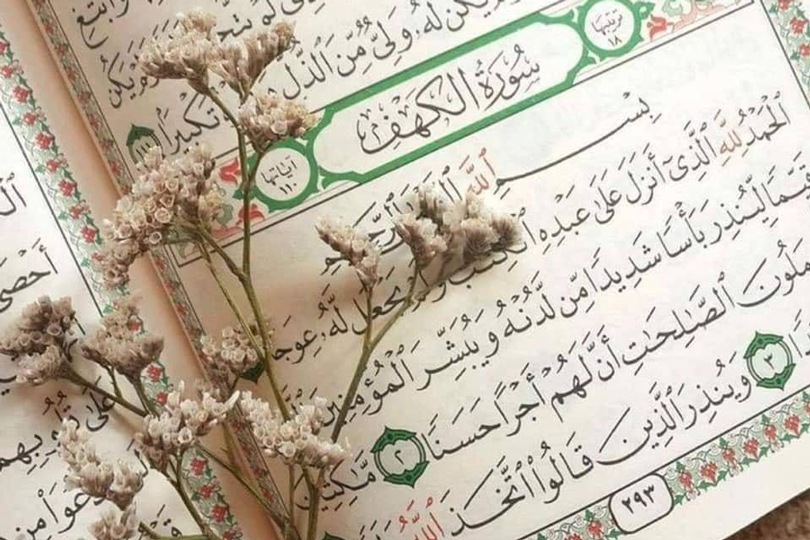 وَٱبْتَغِ
لَمْ يَتَّخِذْ
يَكُن لَّهُۥ وَلِىٌّ مِّنَ ٱلذُّلِّ تَكْبِيرًا ١١١
ترتيبها ١٨ سُورَةُ الكَهْفِ آياتها ١١٠
بِسْمِ ٱللَّهِ ٱلرَّحْمَٰنِ ٱلرَّحِيمِ
ٱلْحَمْدُ لِلَّهِ ٱلَّذِىٓ أَنزَلَ عَلَىٰ عَبْدِهِ ٱلْكِتَٰبَ وَلَمْ يَجْعَل لَّهُۥ عِوَجَا
لِّيُنذِرَ بَأْسًا شَدِيدًا مِّن لَّدُنْهُ وَيُبَشِّرَ ٱلْمُؤْمِنِينَ
ٱلصَّٰلِحَٰتِ أَنَّ لَهُمْ أَجْرًا حَسَنًا ٢ مَّٰكِثِينَ
٣ وَيُنذِرَ ٱلَّذِينَ قَالُوا۟ ٱتَّخَذَ ٱللَّهُ
٢٩٣
أَحْصَىٰ
عَلَىٰ قُلُوبِهِمْ